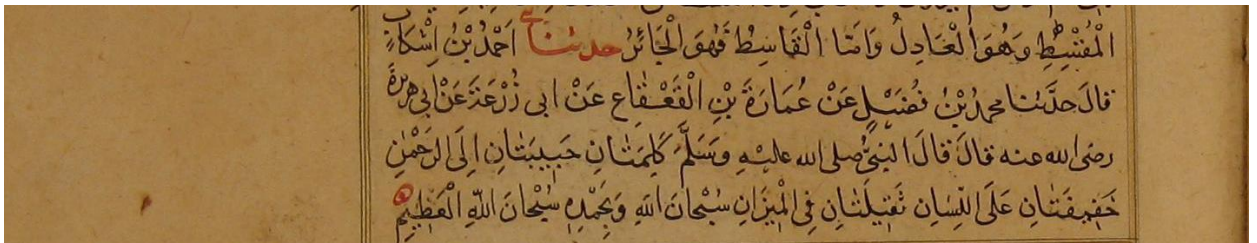 الْمُقْسِطِ وَهُوَ الْعَادِلُ وَاَمَّا الْقَاسِطُ فَهُوَ الْجَائِرُ حدثنا اَحْمَدُ بْنُ اِشْكَابٍ
قالَ حدَّثنا محمدُ بْنُ فُضَيْلٍ عَنْ عُمَارَةَ بْنِ الْقَعْقَاعِ عَنْ ابى زُرْعَةَ عَنْ ابى هريرة
رضى الله عنه قالَ قالَ النبىُّ صلى الله عليْهِ وَسَلَّمَ كَلِمَتَانِ حَبِيبَتَانِ اِلَى الرَّحْمٰنِ
خَفِيفَتَانِ عَلَى اللِّسَانِ ثَقِيلَتَانِ فِى الْمِيزَانِ سُبْحَانَ اللهِ وَبِحَمْدِهِ سُبْحَانَ اللهِ الْعَظِيمِ